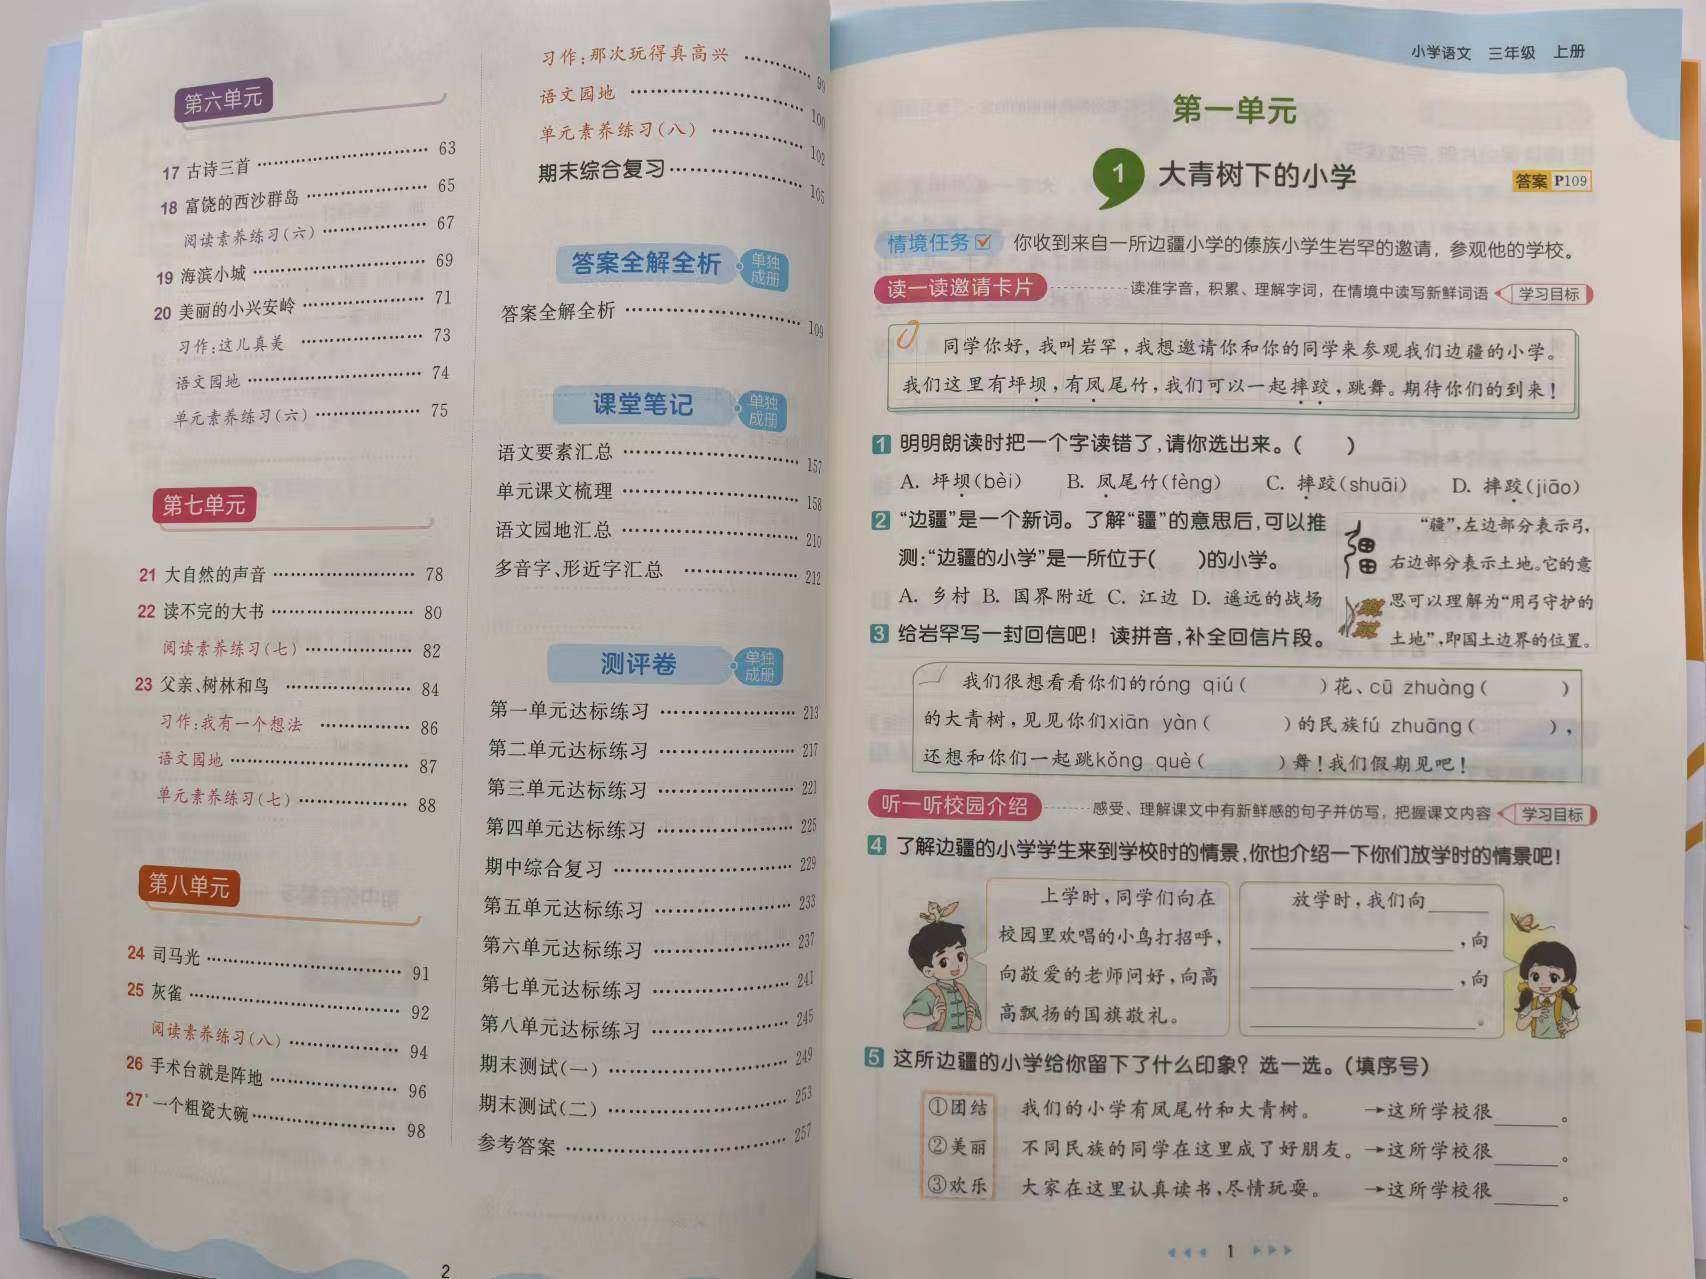 第六单元
17 古诗三首 63
18 富饶的西沙群岛 65
阅读素养练习(六) 67
19 海滨小城 69
20 美丽的小兴安岭 71
习作:这儿真美 73
语文园地 74
单元素养练习(六) 75
第七单元
21 大自然的声音 78
22 读不完的大书 80
阅读素养练习(七) 82
23 父亲、树林和鸟 84
习作:我有一个想法 86
语文园地 87
单元素养练习(七) 88
第八单元
24 司马光 91
25 灰雀 92
阅读素养练习(八) 94
26 手术台就是阵地 96
27* 一个粗瓷大碗 98
习作:那次玩得真高兴 99
语文园地 100
单元素养练习(八) 102
期末综合复习 105
答案全解全析 单独成册
答案全解全析 109
课堂笔记 单独成册
语文要素汇总 157
单元课文梳理 158
语文园地汇总 210
多音字、形近字汇总 212
测评卷 单独成册
第一单元达标练习 213
第二单元达标练习 217
第三单元达标练习 221
第四单元达标练习 225
期中综合复习 229
第五单元达标练习 233
第六单元达标练习 237
第七单元达标练习 241
第八单元达标练习 245
期末测试(一) 249
期末测试(二) 253
参考答案 257
2
小学语文 三年级 上册
第一单元
1 大青树下的小学
答案 P109
情境任务 你收到来自一所边疆小学的傣族小学生岩罕的邀请,参观他的学校。
读一读邀请卡片 读准字音,积累、理解字词,在情境中读写新鲜词语 学习目标
同学你好,我叫岩罕,我想邀请你和你的同学来参观我们边疆的小学。
我们这里有坪坝,有凤尾竹,我们可以一起摔跤,跳舞。期待你们的到来!
1 明明朗读时把一个字读错了,请你选出来。( )
A. 坪坝(bèi) B. 凤尾竹(fèng) C. 摔跤(shuāi) D. 摔跤(jiāo)
2 “边疆”是一个新词。了解“疆”的意思后,可以推
测:“边疆的小学”是一所位于( )的小学。
A. 乡村 B. 国界附近 C. 江边 D. 遥远的战场
“疆”,左边部分表示弓,
右边部分表示土地。它的意
思可以理解为“用弓守护的
土地”,即国土边界的位置。
3 给岩罕写一封回信吧!读拼音,补全回信片段。
我们很想看看你们的róng qiú( )花、cū zhuàng( )
的大青树,见见你们xiān yàn( )的民族fú zhuāng( ),
还想和你们一起跳kǒng què( )舞!我们假期见吧!
听一听校园介绍 感受、理解课文中有新鲜感的句子并仿写,把握课文内容 学习目标
4 了解边疆的小学学生来到学校时的情景,你也介绍一下你们放学时的情景吧!
上学时,同学们向在
校园里欢唱的小鸟打招呼,
向敬爱的老师问好,向高
高飘扬的国旗敬礼。
放学时,我们向____
____,向
____,向
____。
5 这所边疆的小学给你留下了什么印象?选一选。(填序号)
①团结 我们的小学有凤尾竹和大青树。 →这所学校很____。
②美丽 不同民族的同学在这里成了好朋友。→这所学校很____。
③欢乐 大家在这里认真读书,尽情玩耍。 →这所学校很____。
1